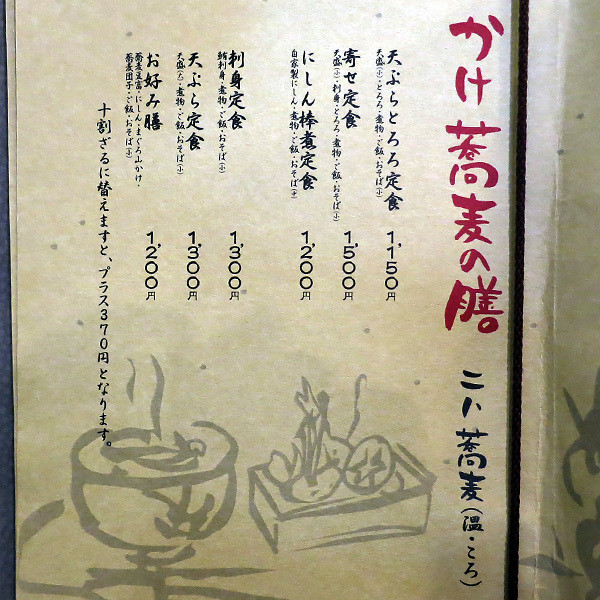 かけ蕎麦の膳。
二八蕎麦(温・ころ)
天ぷらとろろ定食 1,150円
天盛(小)・とろろ・煮物・ご飯・おそば(小)
寄せ定食 1,500円
天盛(小)・刺身・とろろ・煮物・ご飯・おそば(小)
にしん棒煮定食 1,200円
自家製にしん・煮物・ご飯・おそば(小)
刺身定食 1,300円
鮪刺身・煮物・ご飯・おそば(小)
天ぷら定食 1,300円
天盛(大)・煮物・ご飯・おそば(小)
お好み膳 1,200円
蕎麦豆富・にしん・まぐろ山かけ・
蕎麦団子・ご飯・おそば(小)
十割ざるに替えますと、プラス370円となります。